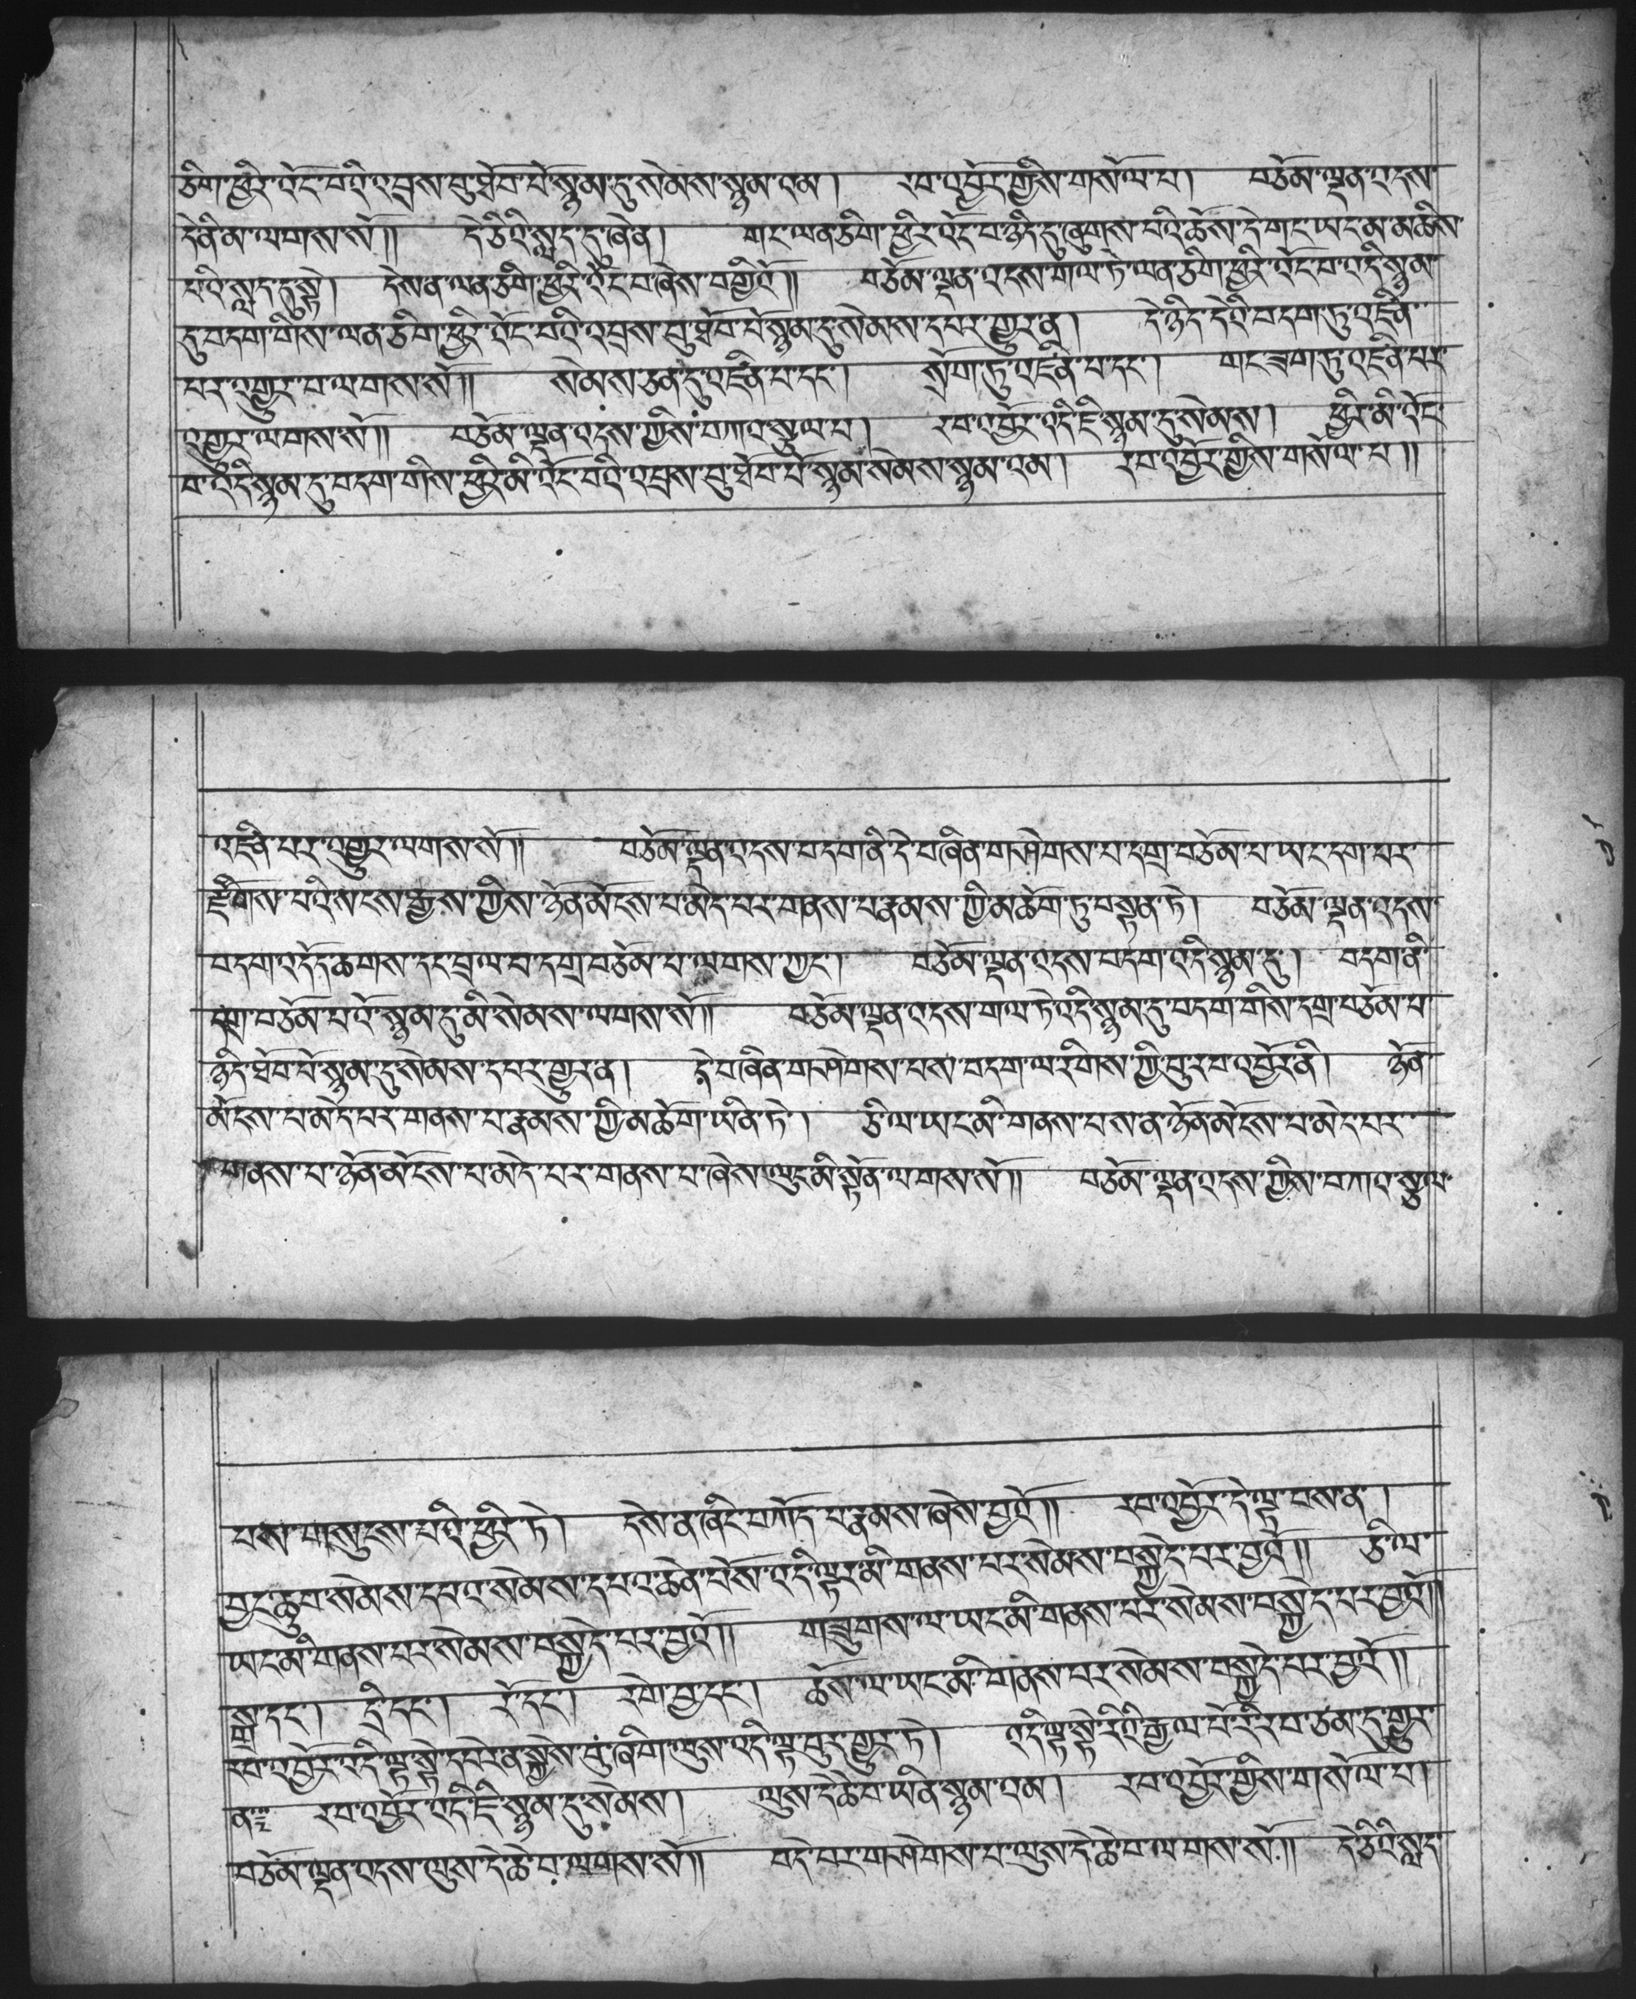 ཅིག་ཕྱིར་འོང་བའི་འབྲས་བུ་ཐོབ་པོ་སྙམ་དུ་སེམས་སྙམ་འམ། རབ་འབྱོར་གྱིས་གསོལ་པ། བཅོམ་ལྡན་འདས་
དེ་ནི་མ་ལགས་སོ།། དེ་ཅིའི་སླད་དུ་ཞེ་ན། གང་ལན་ཅིག་ཕྱིར་འོང་བ་ཉིད་དུ་ཞུགས་པའི་ཆོས་དེ་གང་ཡང་མ་མཆིས་
པའི་སླད་དུ་སྟེ། དེས་ན་ལན་ཅིག་ཕྱིར་འོང་བ་ཞེས་བགྱིའོ།། བཅོམ་ལྡན་འདས་གལ་ཏེ་ལན་ཅིག་ཕྱིར་འོང་བ་འདི་སྙམ་
དུ་བདག་གིས་ལན་ཅིག་ཕྱིར་འོང་བའི་འབྲས་བུ་ཐོབ་པོ་སྙམ་དུ་སེམས་དཔར་གྱུར་ན། དེ་ཉིད་དེའི་བདག་ཏུ་འཛིན་
པར་འགྱུར་བ་ལགས་སོ།། སེམས་ཅན་དུ་འཛིན་པ་དང་། སྲོག་ཏུ་འཛིན་པ་དང་། གང་ཟག་ཏུ་འཛིན་པར་
འགྱུར་ལགས་སོ།། བཅོམ་ལྡན་འདས་ཀྱིས་བཀའ་སྩལ་པ། རབ་འབྱོར་འདི་ཇི་སྙམ་དུ་སེམས། ཕྱིར་མི་འོང་
བ་འདི་སྙམ་དུ་བདག་གིས་ཕྱིར་མི་འོང་བའི་འབྲས་བུ་ཐོབ་པོ་སྙམ་སེམས་སྙམ་འམ། རབ་འབྱོར་གྱིས་གསོལ་པ།།
འཛིན་པར་འགྱུར་ལགས་སོ།། བཅོམ་ལྡན་འདས་བདག་ནི་དེ་བཞིན་གཤེགས་པ་དགྲ་བཅོམ་པ་ཡང་དག་པར་
རྫོགས་པའི་སངས་རྒྱས་ཀྱིས་ཉོན་མོངས་པ་མེད་པར་གནས་པ་རྣམས་ཀྱི་མཆོག་ཏུ་བསྟན་ཏེ། བཅོམ་ལྡན་འདས་
བདག་འདོད་ཆགས་དང་བྲལ་བ་དགྲ་བཅོམ་པ་ལགས་ཀྱང་། བཅོམ་ལྡན་འདས་བདག་འདི་སྙམ་དུ། བདག་ནི་
དགྲ་བཅོམ་པ་འོ་སྙམ་དུ་མི་སེམས་ལགས་སོ།། བཅོམ་ལྡན་འདས་གལ་ཏེ་འདི་སྙམ་དུ་བདག་གིས་དགྲ་བཅོམ་པ་
ཉིད་ཐོབ་པོ་སྙམ་དུ་སེམས་དཔར་གྱུར་ན། དེ་བཞིན་གཤེགས་པས་བདག་ལ་རིགས་ཀྱི་བུ་རབ་འབྱོར་ནི། ཉོན་
མོངས་པ་མེད་པར་གནས་པ་རྣམས་ཀྱི་མཆོག་ཡིན་ཏེ། ཅི་ལ་ཡང་མི་གནས་པས་ན་ཉོན་མོངས་པ་མེད་པར་
གནས་པ་ཉོན་མོངས་པ་མེད་པར་གནས་པ་ཞེས་ལུང་མི་སྟོན་ལགས་སོ།། བཅོམ་ལྡན་འདས་ཀྱིས་བཀའ་སྩལ་
པས་གསུངས་པའི་ཕྱིར་ཏེ། དེས་ན་ཞིང་བཀོད་པ་རྣམས་ཞེས་བྱའོ།། རབ་འབྱོར་དེ་ལྟ་བས་ན།
བྱང་ཆུབ་སེམས་དཔའ་སེམས་དཔའ་ཆེན་པོས་འདི་ལྟར་མི་གནས་པར་སེམས་བསྐྱེད་པར་བྱའོ།། ཅི་ལ་
ཡང་མི་གནས་པར་སེམས་བསྐྱེད་པར་བྱའོ།། གཟུགས་ལ་ཡང་མི་གནས་པར་སེམས་བསྐྱེད་པར་བྱའོ།།
སྒྲ་དང་། དྲི་དང་། རོ་དང་། རེག་བྱ་དང་། ཆོས་ལ་ཡང་མི་གནས་པར་སེམས་བསྐྱེད་པར་བྱའོ།།
རབ་འབྱོར་འདི་ལྟ་སྟེ་དཔེར་ན་སྐྱེས་བུ་ཞིག་ལུས་འདི་ལྟ་བུར་གྱུར་ཏེ། འདི་ལྟ་སྟེ་རིའི་རྒྱལ་པོ་རི་རབ་ཙམ་དུ་གྱུར་
ན༔ རབ་འབྱོར་འདི་ཇི་སྙམ་དུ་སེམས། ལུས་དེ་ཆེ་བ་ཡིན་སྙམ་འམ། རབ་འབྱོར་གྱིས་གསོལ་པ།
བཅོམ་ལྡན་འདས་ལུས་དེ་ཆེ་བ་ལགས་སོ།། བདེ་བར་གཤེགས་པ་ལུས་དེ་ཆེ་བ་ལགས་སོ།། དེ་ཅིའི་སླད་